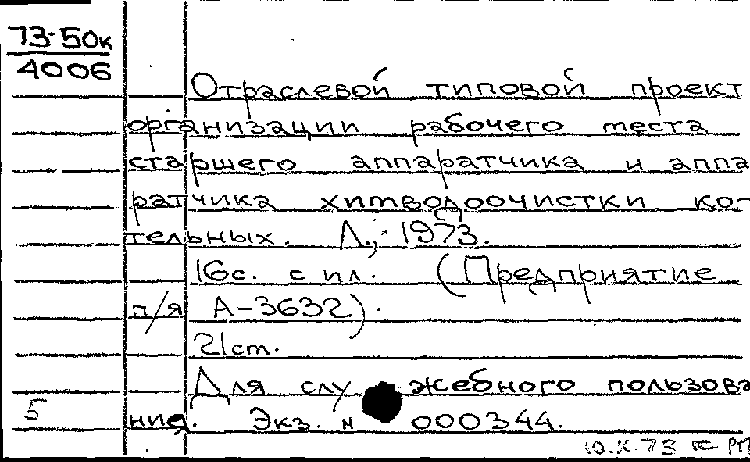 73-50к
4006
Отраслевой типовой проект
организации рабочего места
старшего аппаратчика и аппа
ратчика химводоочистки ко-
тельных. Л., 1973.
16с. с ил. (Предприятие
п/я А-3632).
21см.
Для служебного пользова
5 ния. Экз. N 000344.
10.X.73